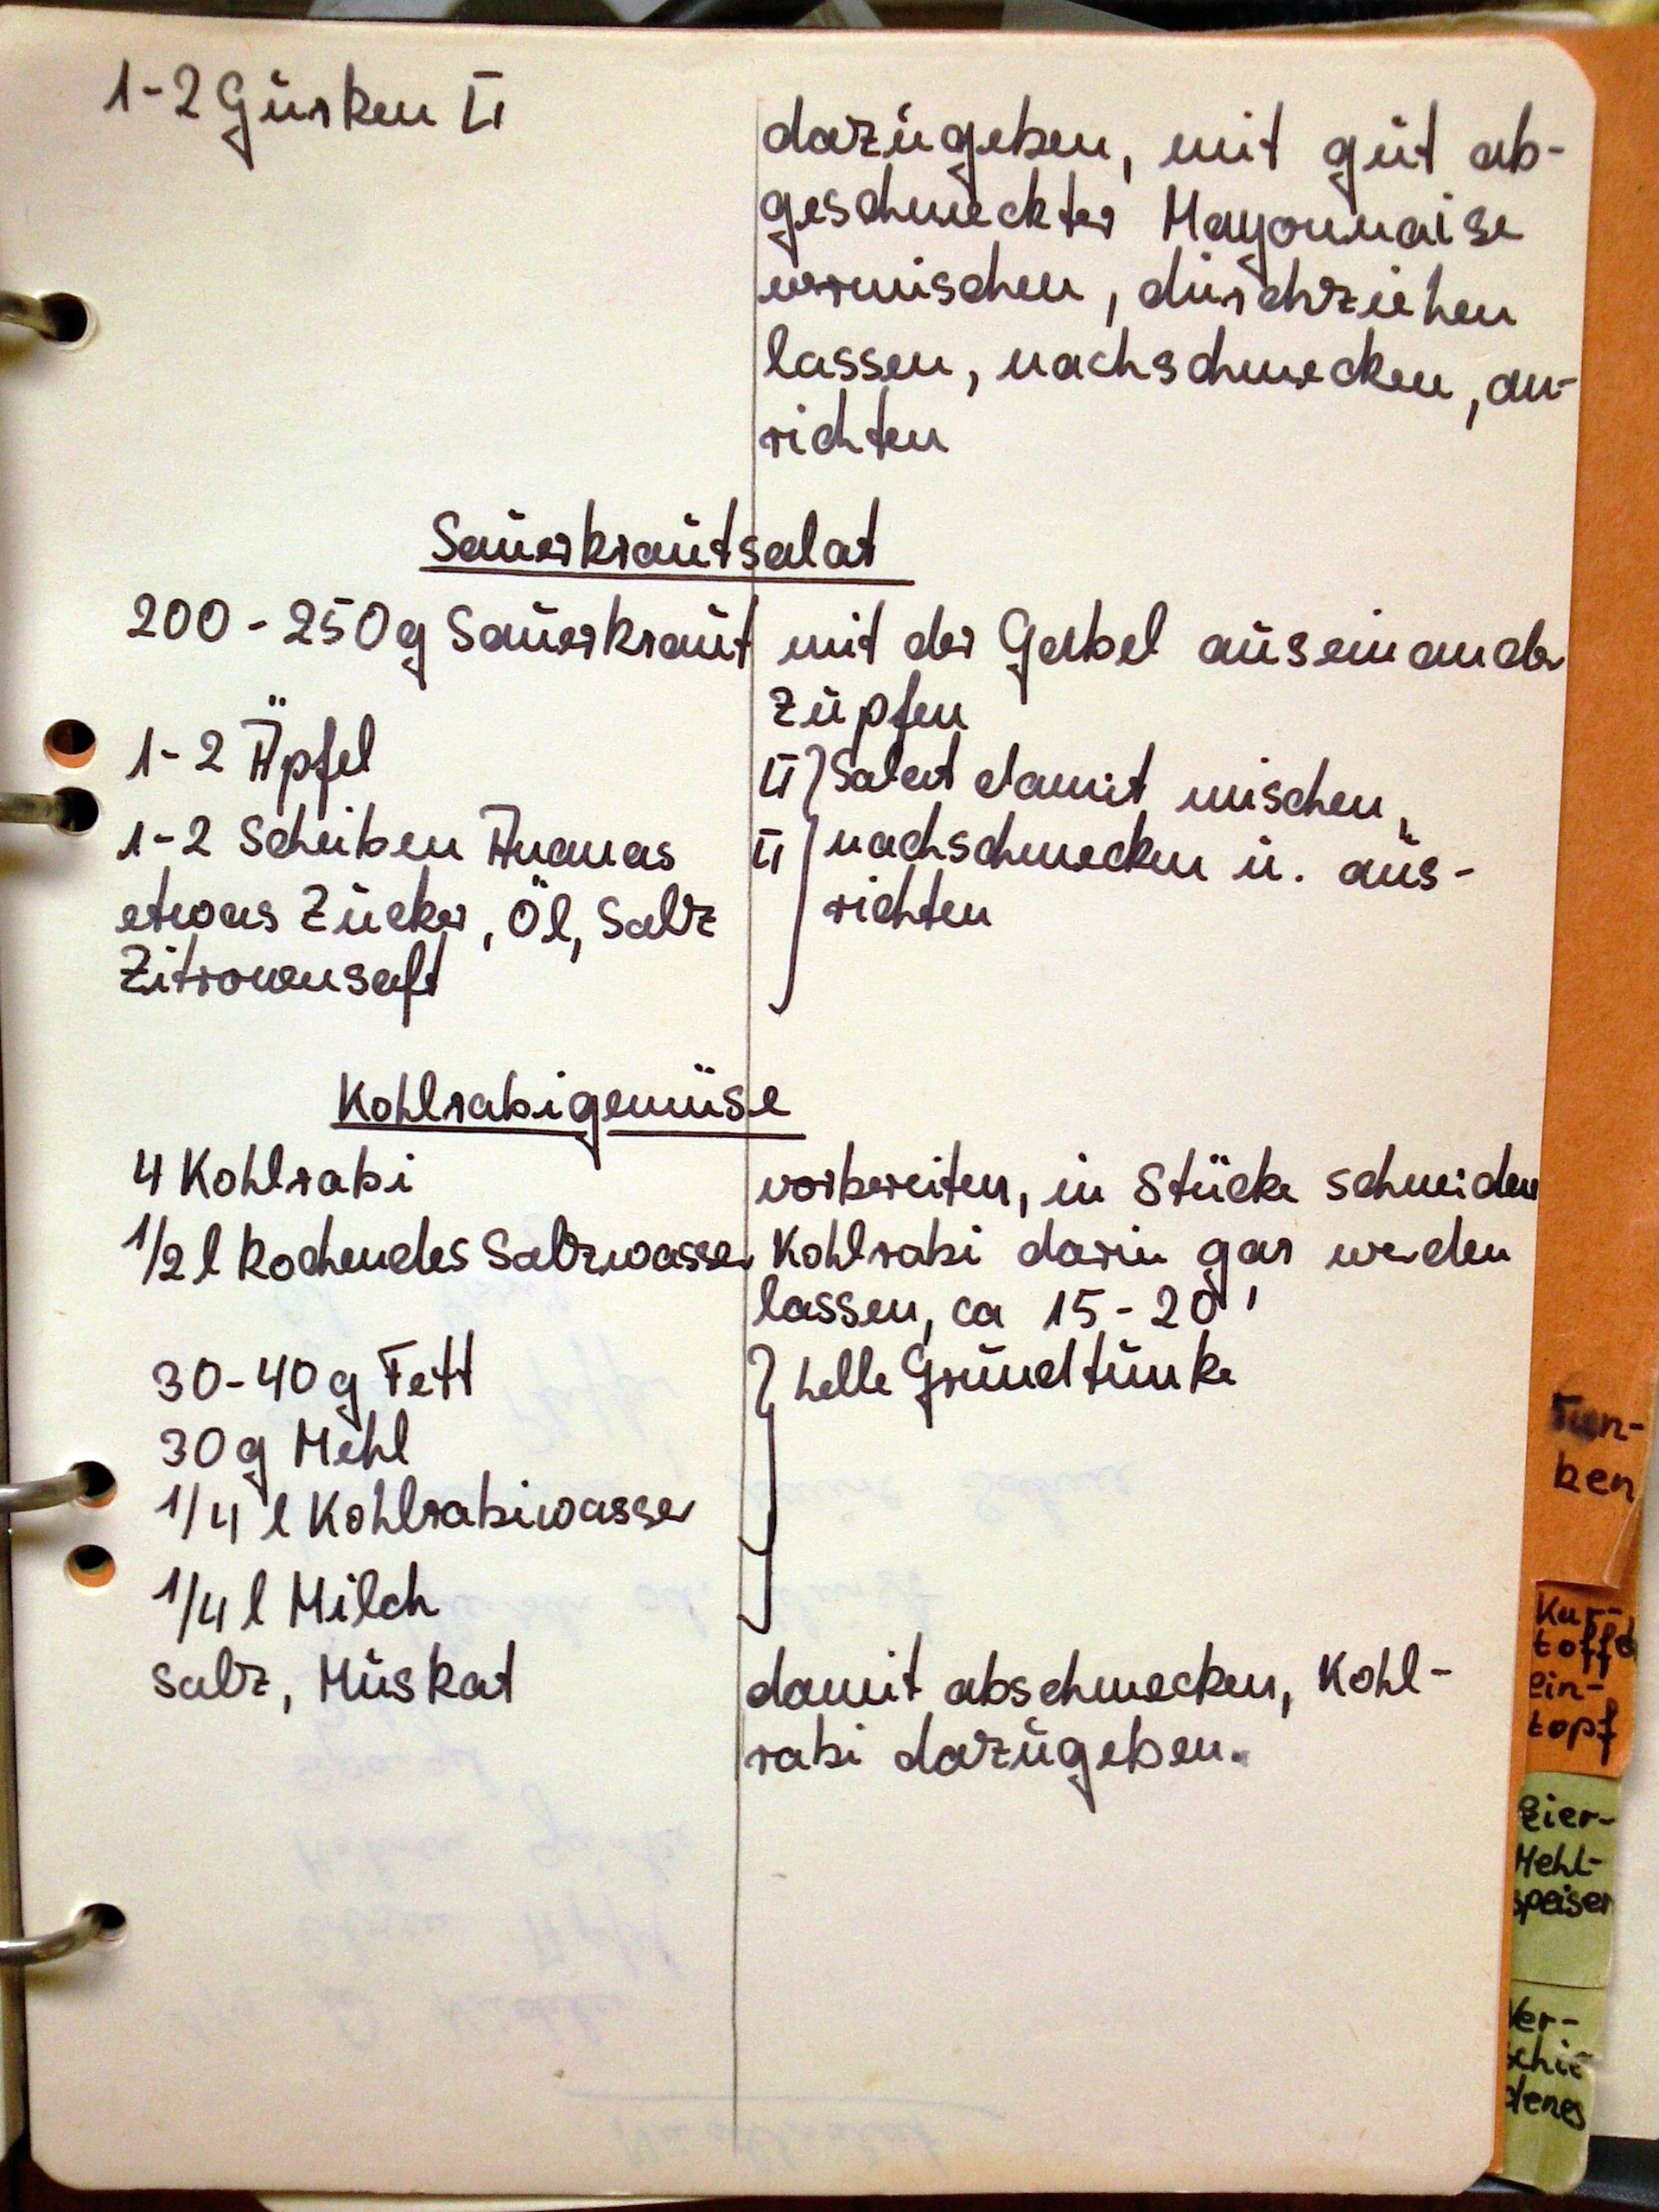 1-2 Gurken
dazugeben, mit gut ab-
geschmeckter Mayonnaise
vermischen, durchziehen
lassen, nachschmecken, an-
richten
Sauerkrautsalat
200 - 250g Sauerkraut mit der Gabel auseinander
zupfen
1-2 Äpfel } Salat damit mischen,
1-2 Scheiben Ananas nachschmecken u. aus-
etwas Zucker, Öl, Salz richten
Zitronensaft
Kohlrabigemüse
4 Kohlrabi vorbereiten, in Stücke schneiden
1/2 l kochendes Salzwasser Kohlrabi darin gar werden
lassen, ca 15 - 20'
30-40g Fett } helle Grundtunke
30g Mehl
1/4 l Kohlrabiwasser
1/4 l Milch
Salz, Muskat damit abschmecken, Kohl-
rabi dazugeben.
Tun-
ken
Kar-
toffel
ein-
topf
Eier-
Mehl-
speisen
Ver-
schie
denes